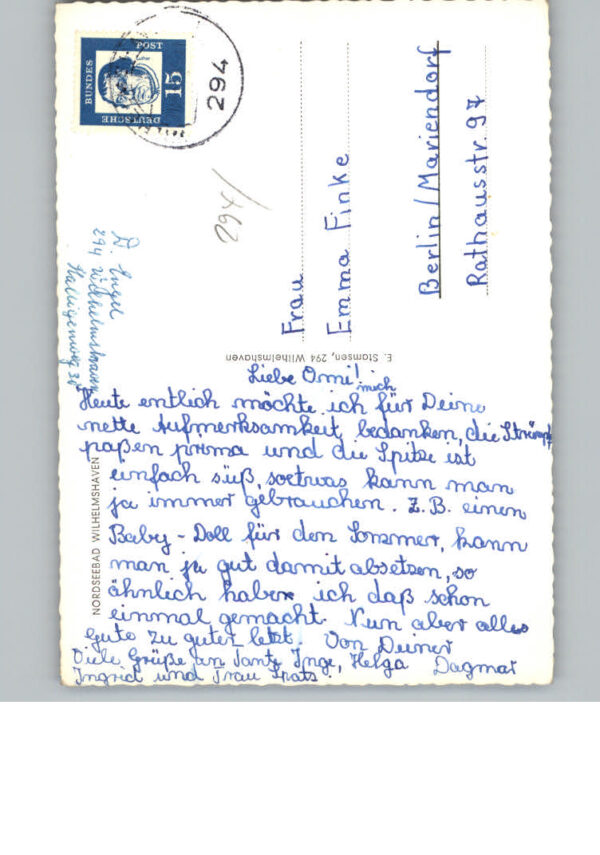 DEUTSCHE
BUNDES
POST
15
294
294/
D. Engel
294 Wilhelmshaven
Frau
Emma Finke
Berlin/Mariendorf
Rathausstr. 97
E. Stamsen, 294 Wilhelmshaven
NORDSEEBAD WILHELMSHAVEN
Liebe Omi!
Heute entlich möchte ich mich für Deine
nette Aufmerksamkeit bedanken, die Strümpfe
paßen prima und die Spitze ist
einfach süß, soetwas kann man
ja immer gebrauchen. Z.B. einen
Baby-Doll für den Sommer, kann
man ja gut damit absetzen, so
ähnlich habe ich daß schon
einmal gemacht. Nun aber alles
Gute zu guter letzt. Von Deiner
Dagmar
Viele Grüße an Tante Inge, Helga
Ingrid und Frau